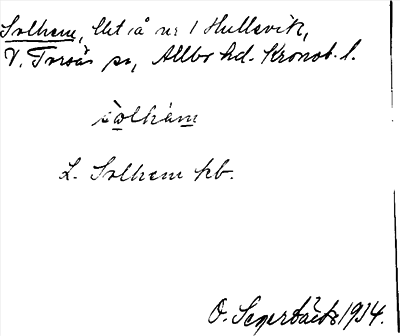 Solhem, lht å nr 1 Hullsvik,
V. Torsås sn, Allbo hd. Kronob. l.
sòlhém
L. Solhem pb.
O. Segerbäck 1914.